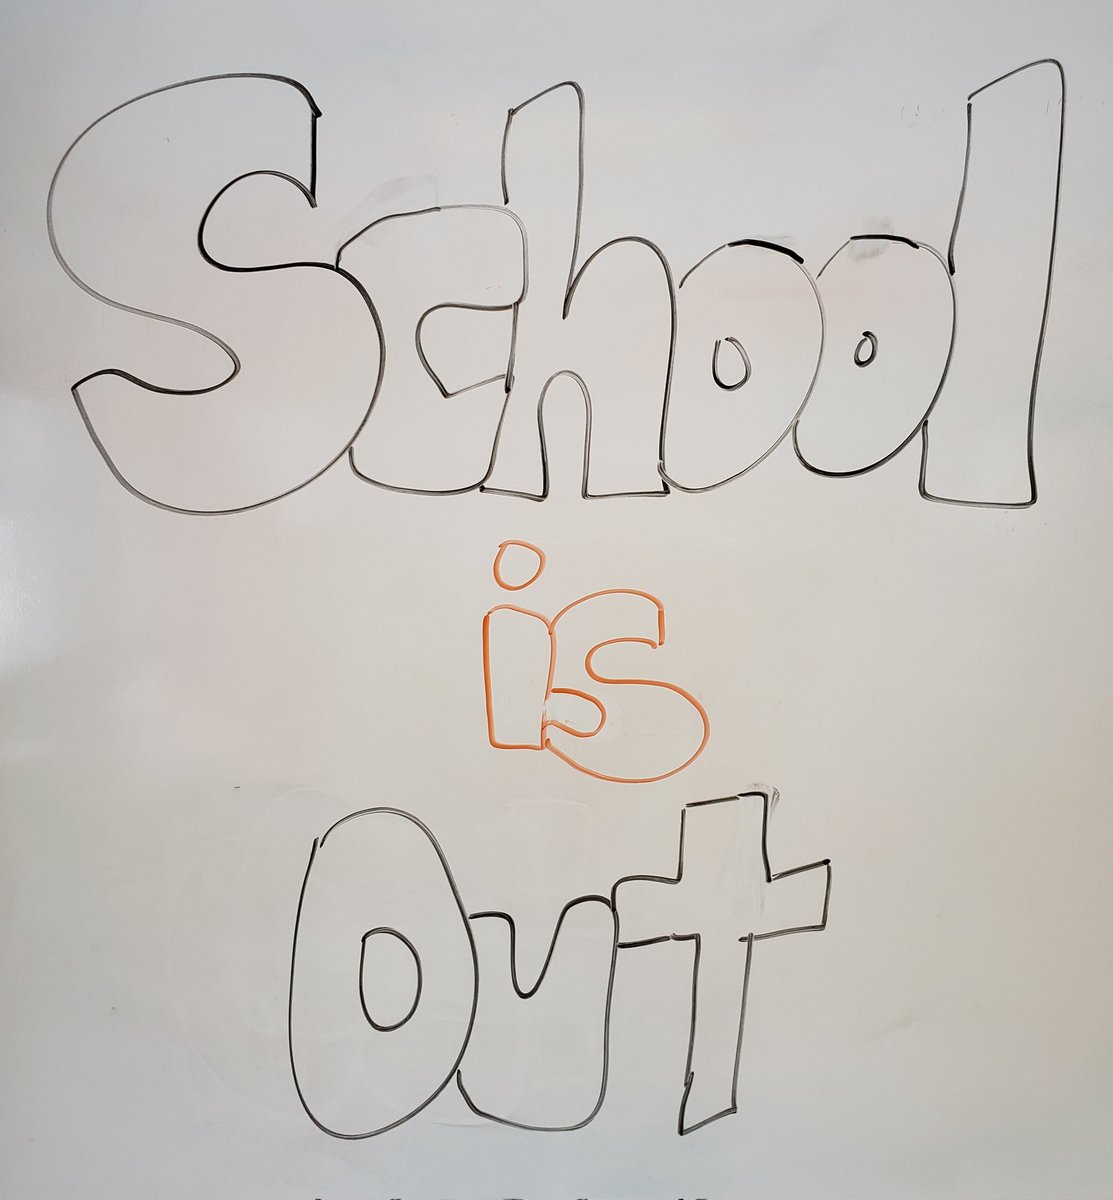 School
is
Out